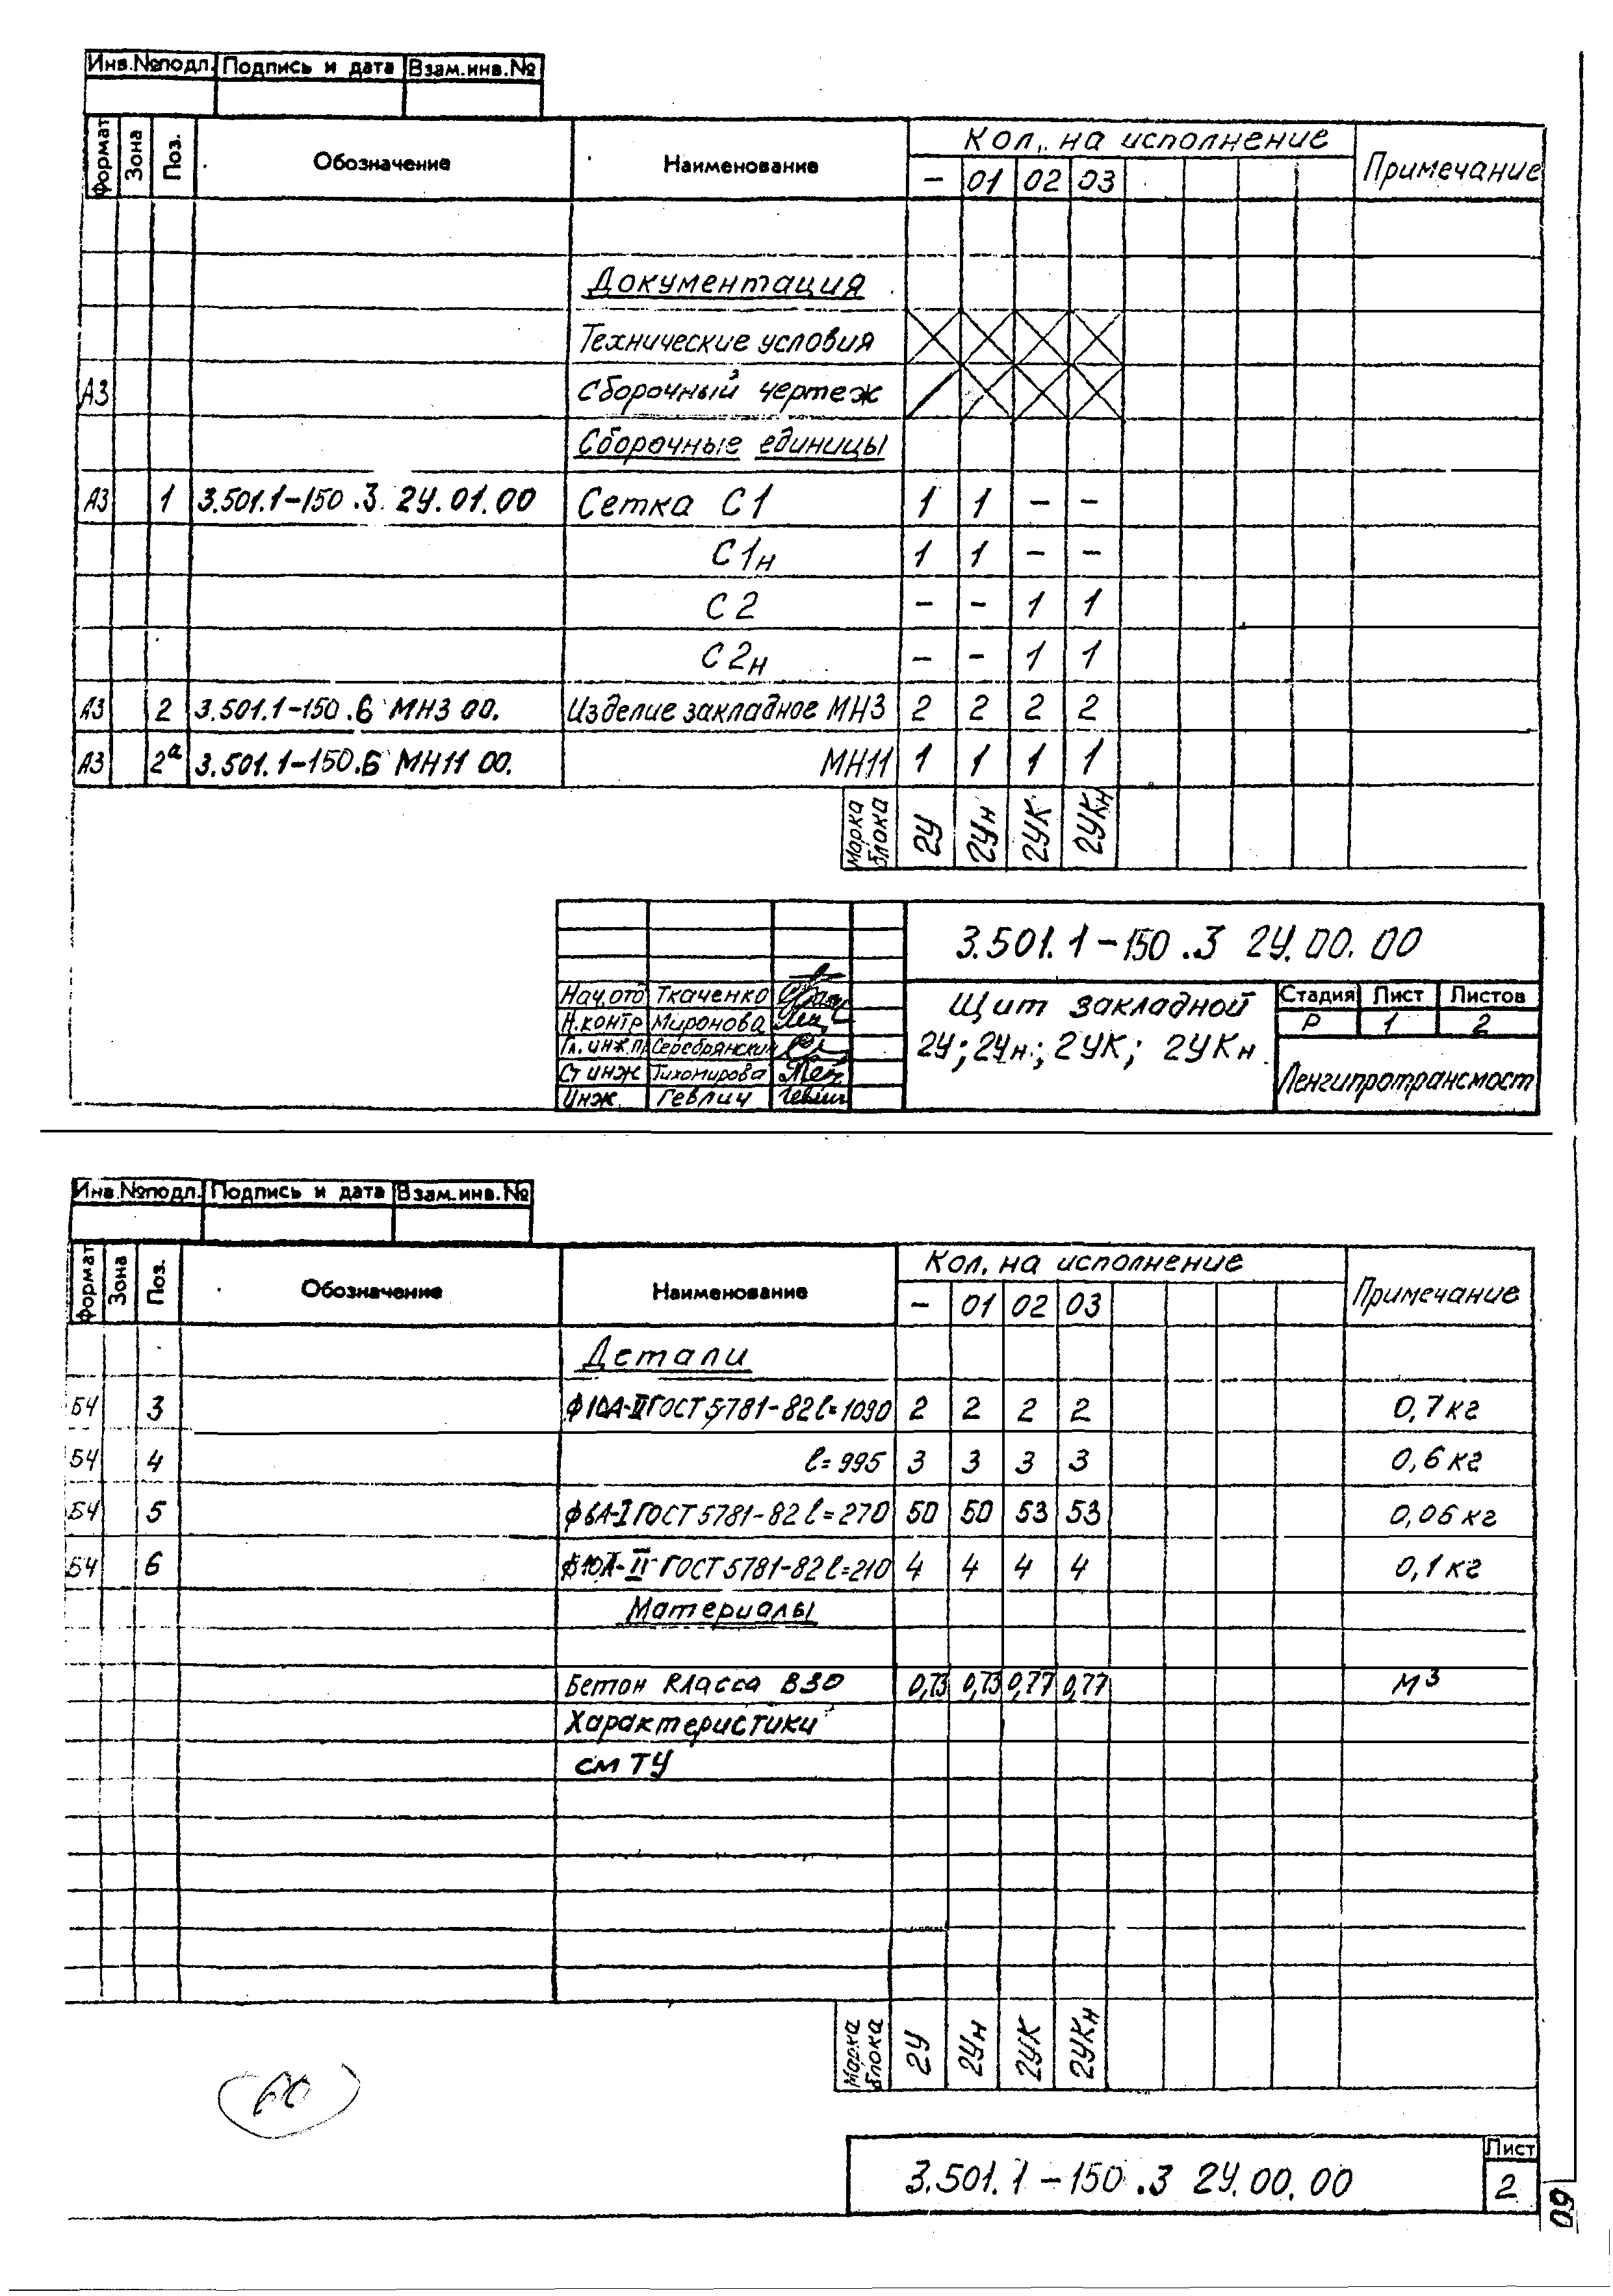 Инв.№подл. Подпись и дата Взам.инв.№
Формат Зона Поз. Обозначение Наименование Кол. на исполнение Примечание
– 01 02 03
Документация
Технические условия
А3 Сборочный чертеж
Сборочные единицы
А3 1 3.501.1-150.3 2У.01.00 Сетка С1 1 1 – –
С1н 1 1 – –
С2 – – 1 1
С2н – – 1 1
А3 2 3.501.1-150.6 МН3 00. Изделие закладное МН3 2 2 2 2
А3 2а 3.501.1-150.6 МН11 00. МН11 1 1 1 1
Марка блока 2У 2Ун 2УК 2УКн
3.501.1-150.3 2У.00.00
Нач.отд Ткаченко
Н.контр Миронова
Гл.инж.пр Серебрянский
Ст инж Тихомирова
Инж. Гевлич
Щит закладной
2У; 2Ун; 2УК; 2УКн
Стадия Лист Листов
Р 1 2
Ленгипротрансмост
Инв.№подл. Подпись и дата Взам.инв.№
Формат Зона Поз. Обозначение Наименование Кол. на исполнение Примечание
– 01 02 03
Детали
БЧ 3 ф10А-II ГОСТ 5781-82 l=1090 2 2 2 2 0,7 кг
БЧ 4 l=995 3 3 3 3 0,6 кг
БЧ 5 ф6А-I ГОСТ 5781-82 l=270 50 50 53 53 0,06 кг
БЧ 6 ф10А-II ГОСТ 5781-82 l=210 4 4 4 4 0,1 кг
Материалы
Бетон класса В30 0,73 0,73 0,77 0,77 м3
Характеристики
см ТУ
Марка блока 2У 2Ун 2УК 2УКн
60
3.501.1-150.3 2У.00.00
Лист
2
60